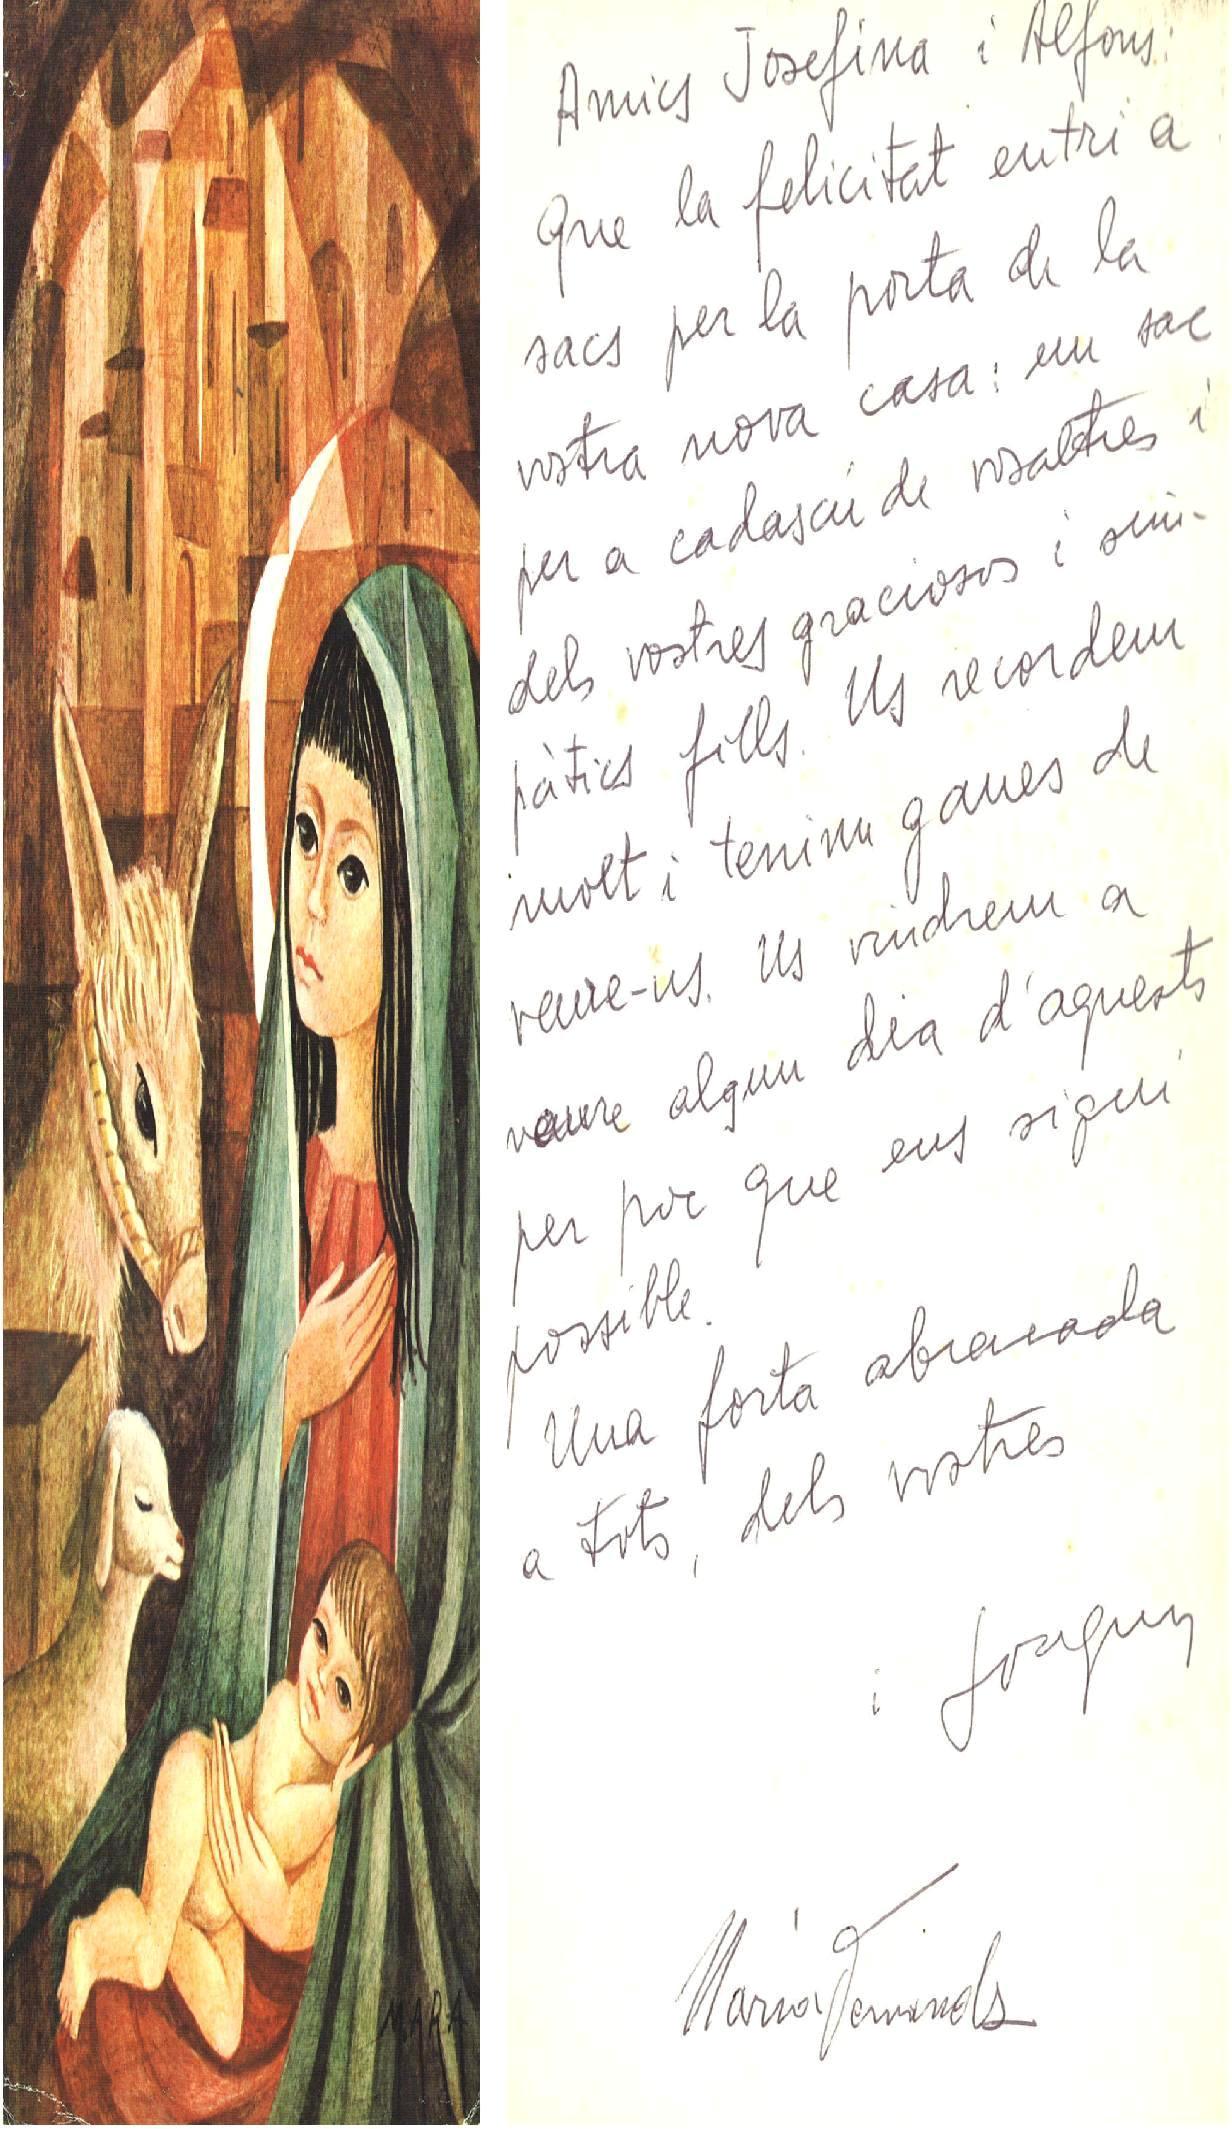 MARA
Amics Josefina i Alfons:
Que la felicitat entri a
sacs per la porta de la
vostra nova casa: un sac
per a cadascú de vosaltres i
dels vostres graciosos i sim-
pàtics fills. Us recordem
molt i tenim ganes de
veure-us. Us vindrem a
veure algun dia d'aquests
per poc que ens sigui
possible.
Una forta abraçada
a tots, dels vostres
i Joaquim
Maria